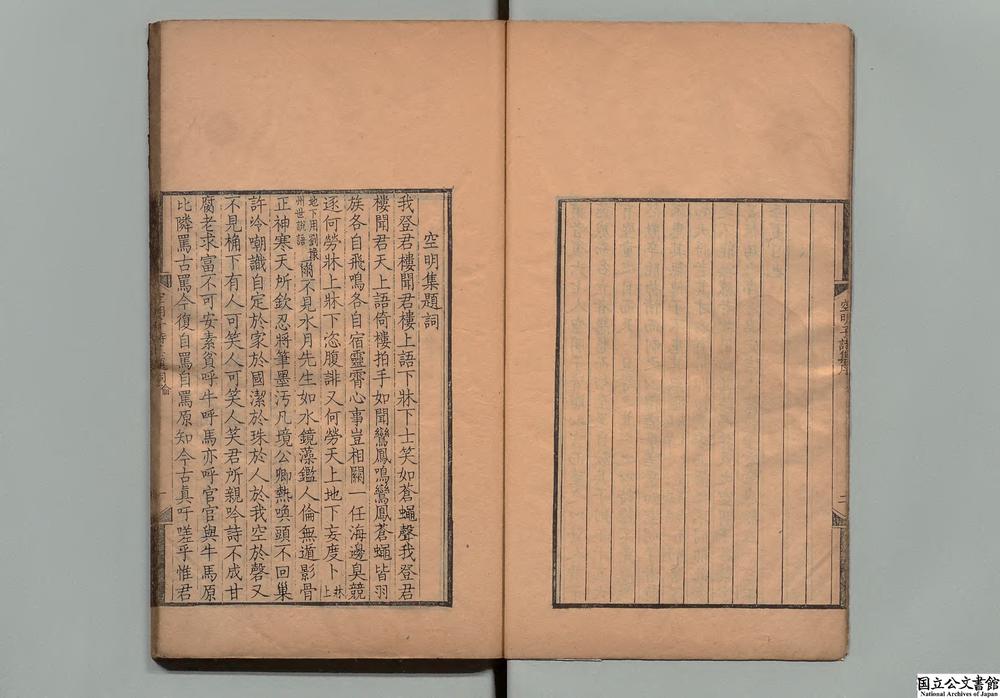 空明子詩集序
二
空明集題詞
我登君樓聞君樓上語下牀下士笑如蒼蠅聲我登君
樓聞君天上語倚樓拍手如聞鸞鳳鳴鸞鳳蒼蠅皆羽
族各自飛鳴各自宿靈霄心事豈相關一任海邊臭競
逐何勞牀上牀下恣腹誹又何勞天上地下妄度卜牀上
地下用劉豫州世說語爾不見水月先生如水鏡藻鑑人倫無遁影骨
正神寒天所欽忍將筆墨汚凡境公卿熱喚頭不回巢
許吟嘲識自定於家於國潔於珠於人於我空於磬又
不見桶下有人可笑人可笑人笑君所親吟詩不成甘
腐老求富不可安素貧呼牛呼馬亦呼官官與牛馬原
比隣罵古罵今復自罵自罵原知今古真吁嗟乎惟君
一
国立公文書館
National Archives of Japan